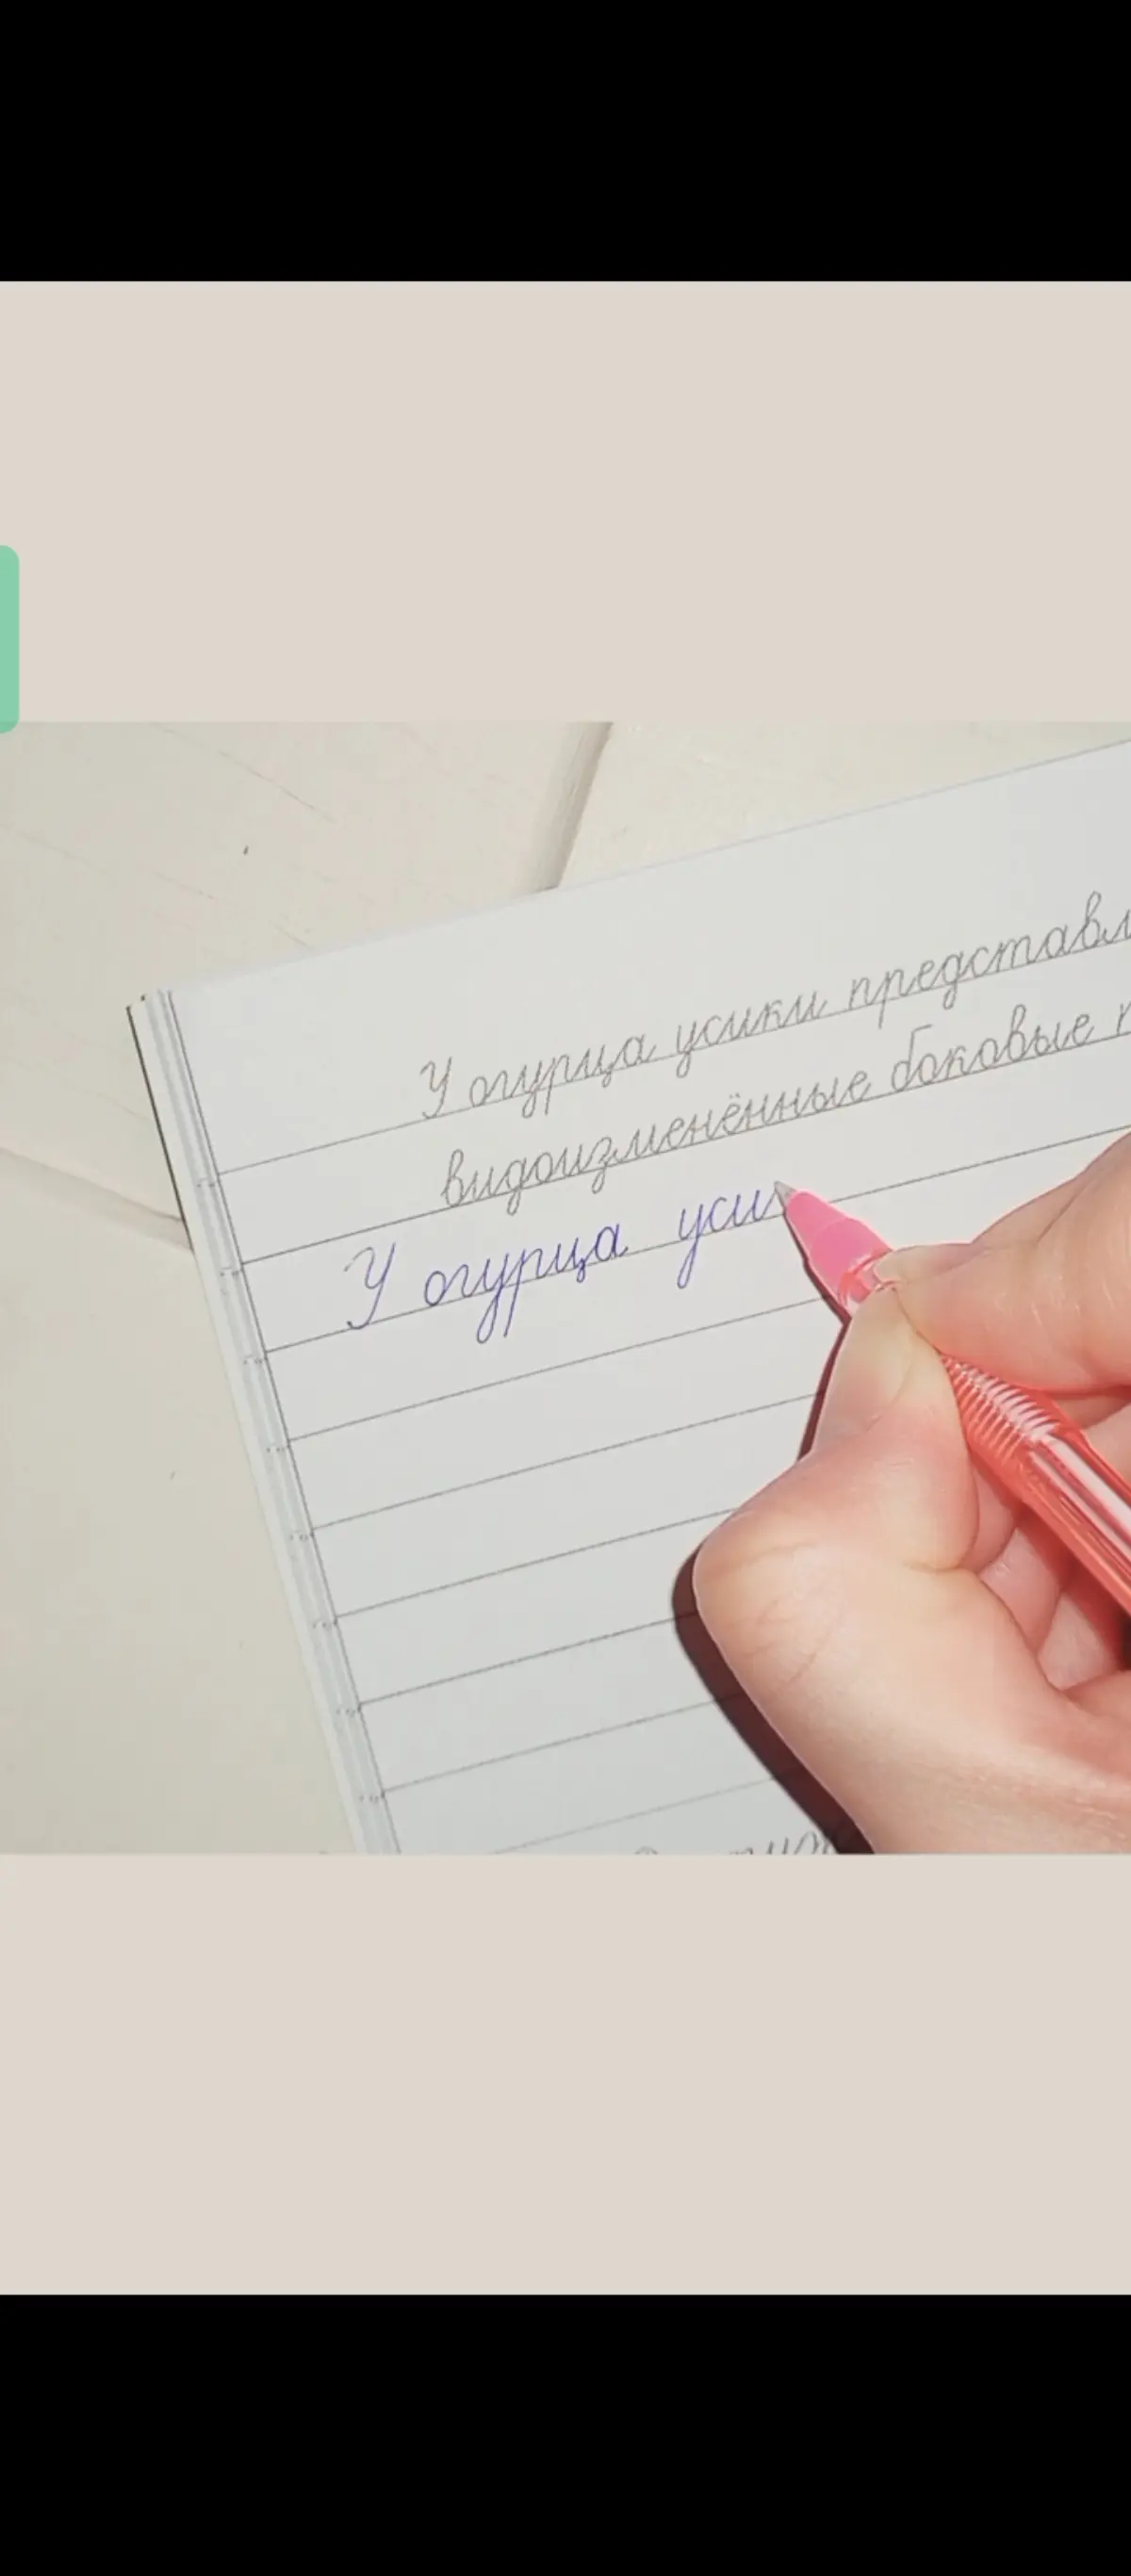 У огурца усики представл
видоизменённые боковые
У огурца уси